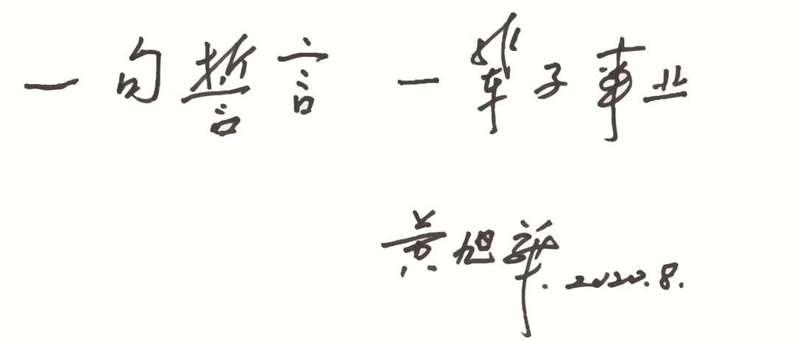 一句誓言 一辈子事业
黄旭华.2020.8.